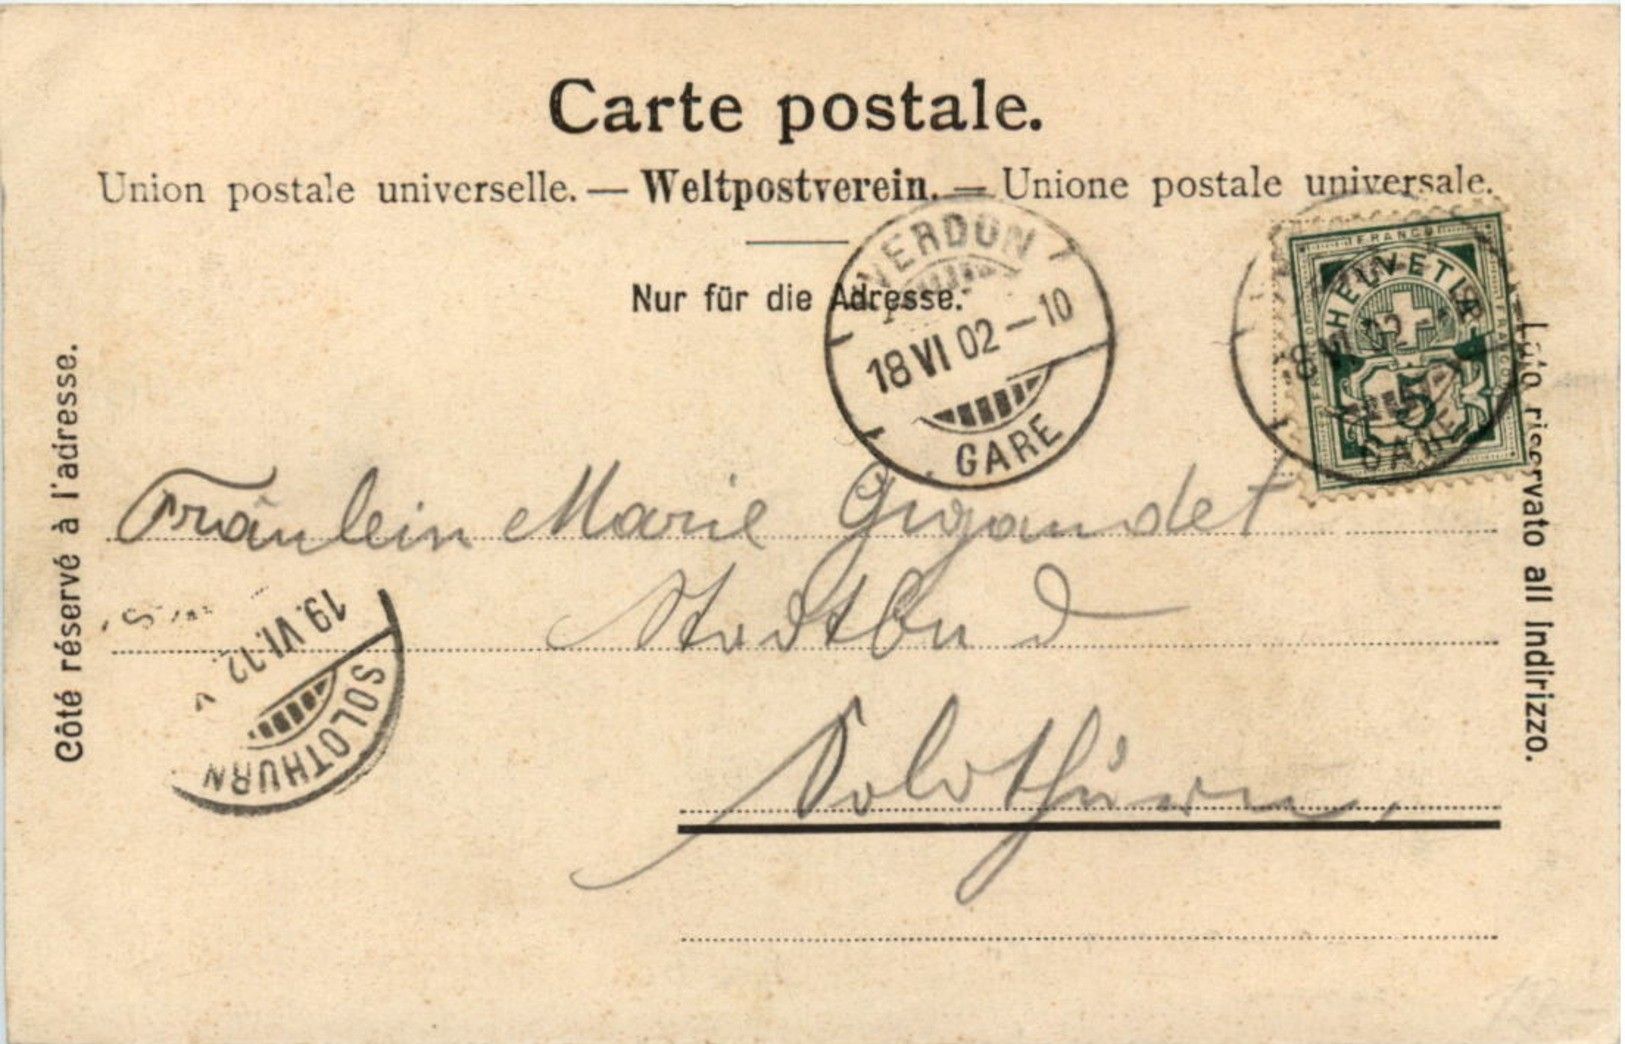 Carte postale.
Union postale universelle. — Weltpostverein. — Unione postale universale.
Nur für die Adresse.
Côté réservé à l'adresse.
Lato riservato all Indirizzo.
YVERDON
18 VI 02 – 10
GARE
FRANCO
HELVETIA
5
GARE
Fräulein Marie Gigandet
Stadtbad
Solothurn.
19. VI. 02.
SOLOTHURN